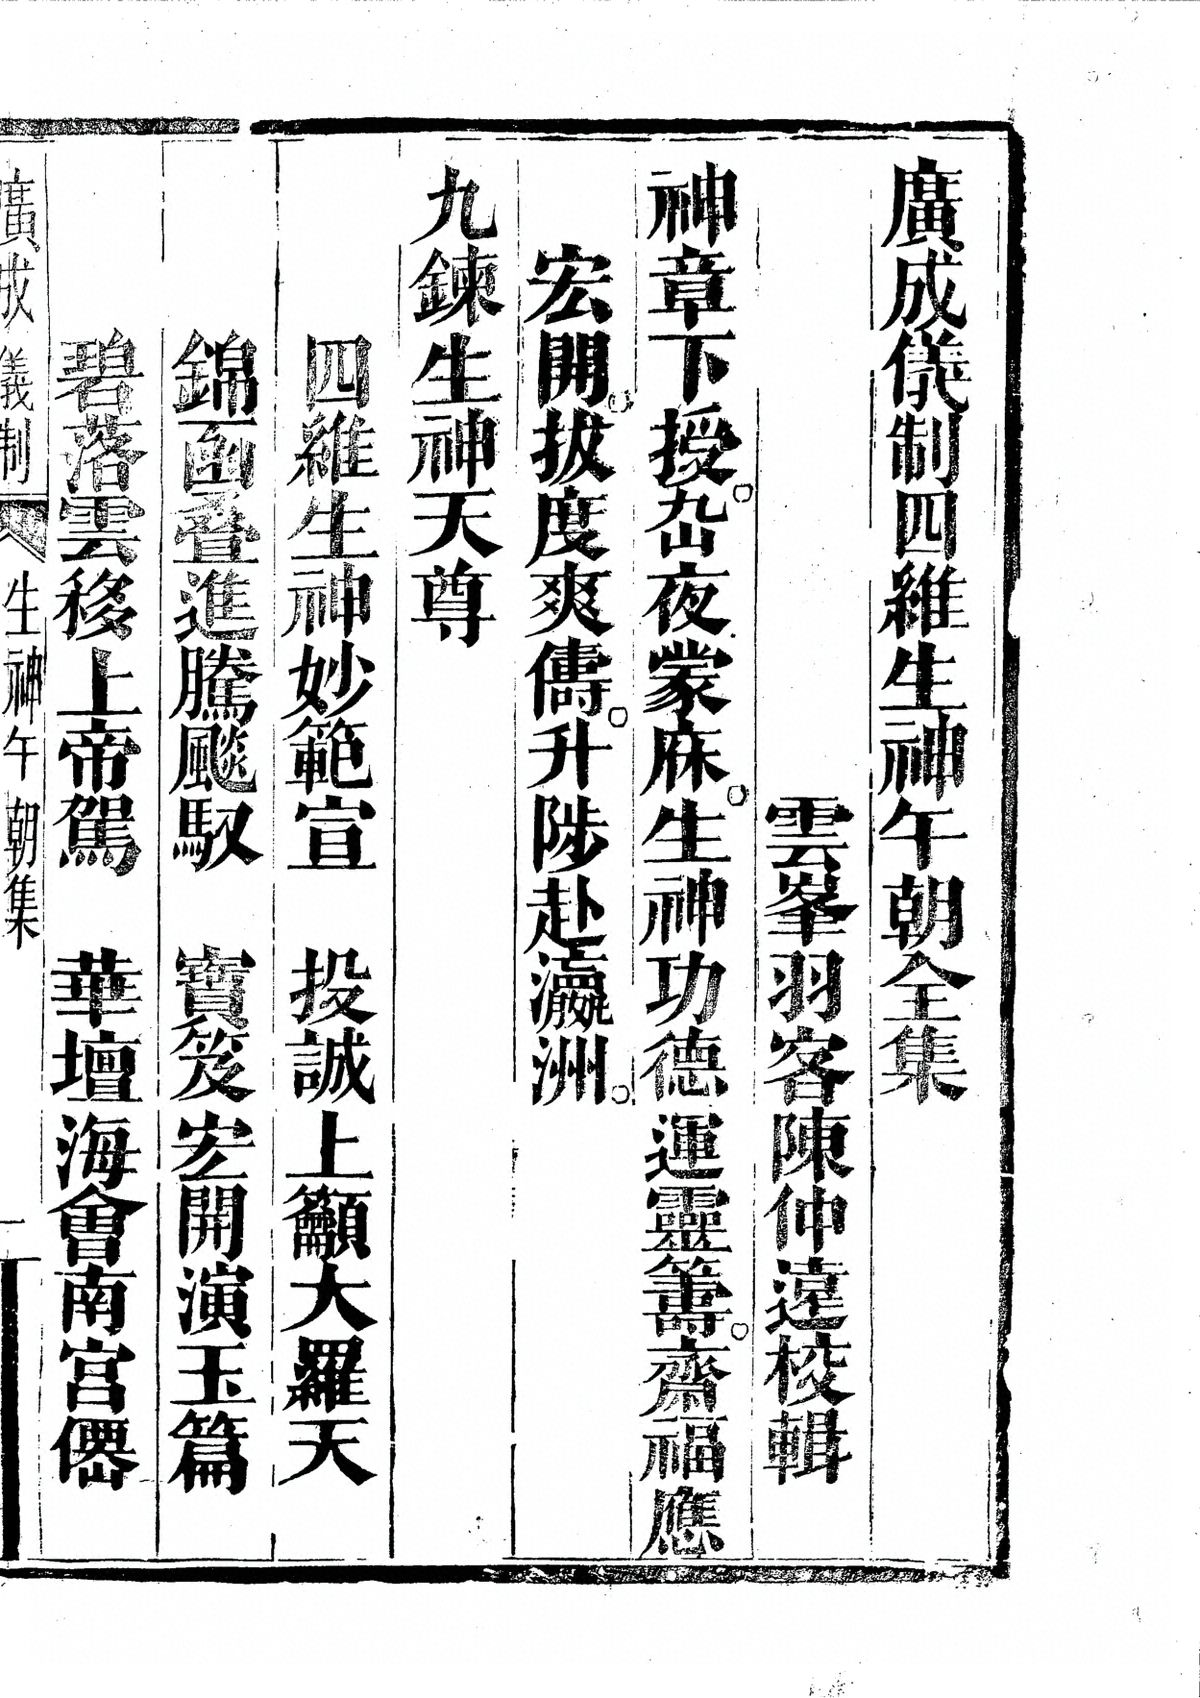 廣成儀制四維生神午朝全集
雲峯羽客陳仲遠校輯
神章下授。夜蒙庥。生神功德運靈籌。齋福應
宏開。拔度爽儔。升陟赴瀛洲。
九鍊生神天尊
四維生神妙範宣　投誠上籲大羅天
錦函叠進騰飈馭　寶笈宏開演玉篇
碧落雲移上帝駕　華壇海會南宮僊
廣成儀制　生神午朝集　一